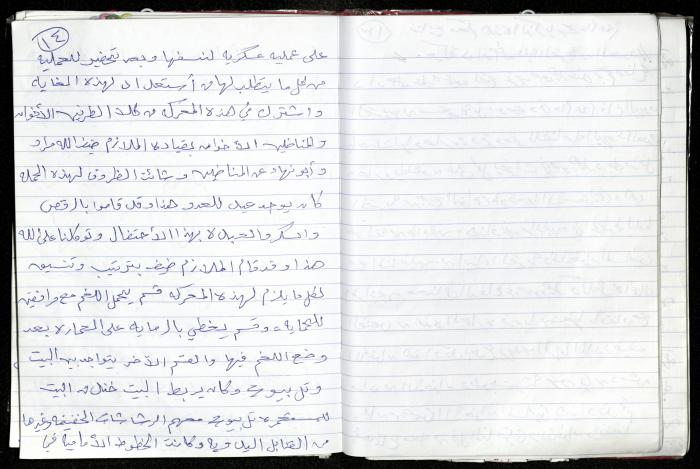 ١٤
على عملية عسكرية لنسفها وبعد تحضير للعملية
من كل ما يتطلب لها من أستعداد لهذه الغاية
واشترك في هذه المعركة من كلا الطرفين الأخوان
والمناضلين الأخوان بقيادة الملازم ضيف الله مراد
وأبو نهاد عن المناضلين وشائت الظروف لهذه الحملة
كان يوجد عيد للعدو هذا وقد قاموا بالرقص
والسكر والعبدة بهذا الأحتفال وتوكلنا على الله
هذا وقد قام الملازم ضيف بترتيب وتنسيق
لكل ما يلزم لهذه المعركة قسم يحمل اللغم مع مرافقين
للحماية وقسم يغطي بالرماية على العمارة بعد
وضع اللغم فيها والقسم الأخر يتواجد بين البيت
وتل بيوت وكان يربط البيت خندق من البيت
للمستعمرة تل بيوت معهم الرشاشات الخفيفة وغيرها
من القنابل اليدوية وكانت الخطوط الأمامية في